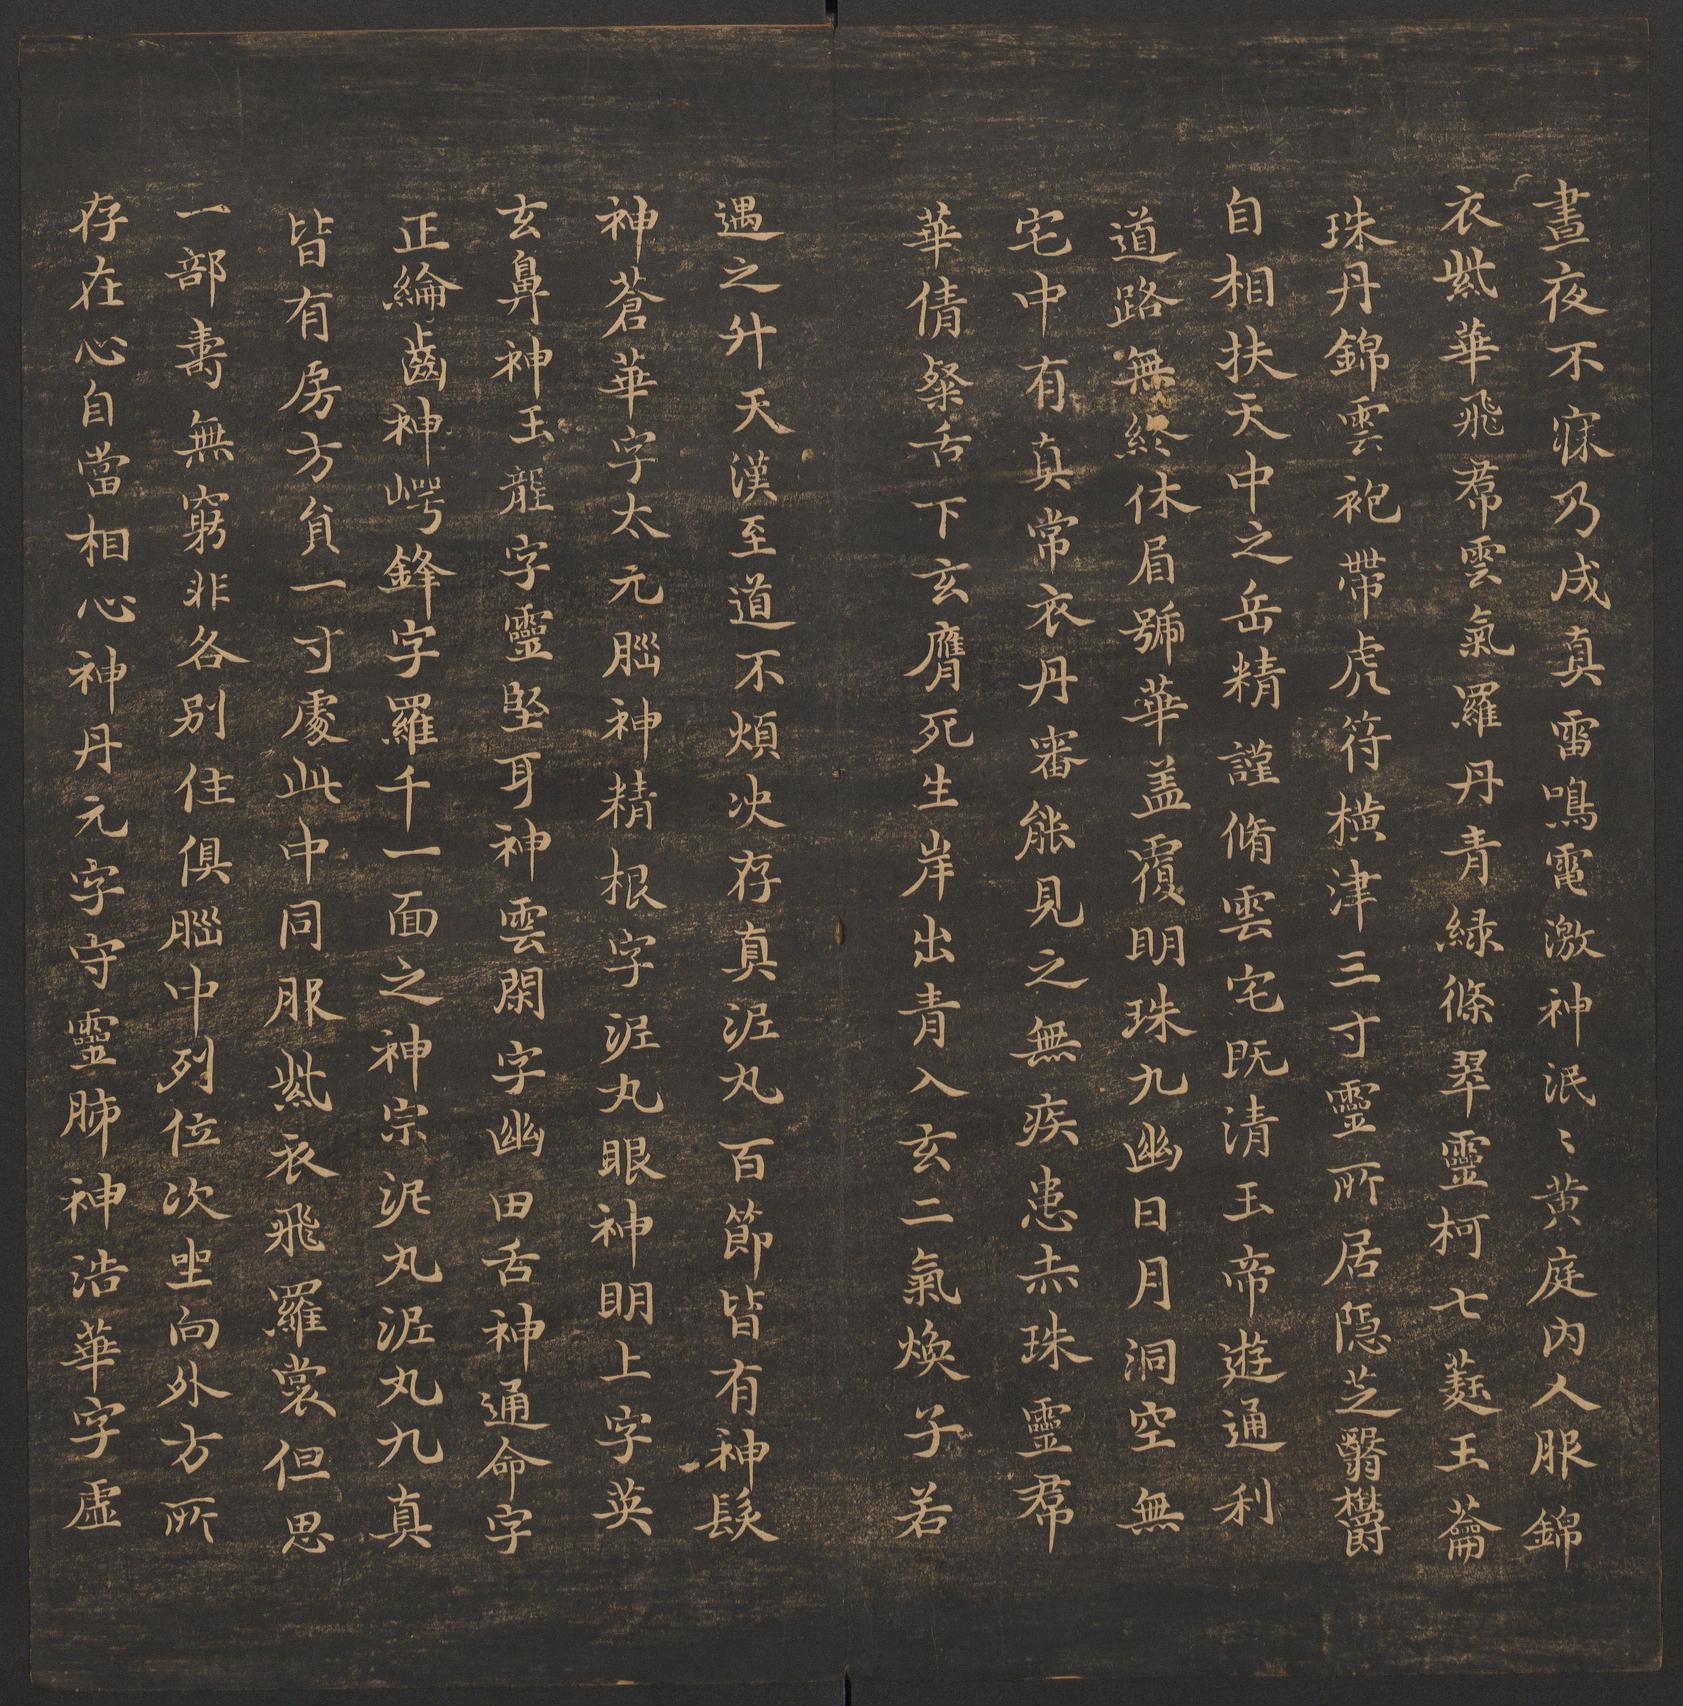 晝夜不寐乃成真雷鳴電激神泯〻黄庭内人服錦
衣紫華飛帬雲氣羅丹青緑條翠靈柯七蕤玉籥
珠丹錦雲袍帶虎符横津三寸靈所居隱芝翳欝
自相扶天中之岳精謹脩雲宅既清玉帝遊通利
道路無終休眉號華盖覆明珠九幽日月洞空無
宅中有真常衣丹審能見之無疾患赤珠靈帬
華倩粲舌下玄膺死生岸出青入玄二氣焕子若
遇之升天漢至道不煩决存真泥丸百節皆有神髮
神蒼華字太元腦神精根字泥丸眼神明上字英
玄鼻神玉壟字靈堅耳神雲閑字幽田舌神通命字
正綸齒神崿鋒字羅千一面之神宗泥丸泥丸九真
皆有房方負一寸處此中同服紫衣飛羅裳但思
一部壽無窮非各别住俱腦中列位次坐向外方所
存在心自當相心神丹元字守靈肺神浩華字虚